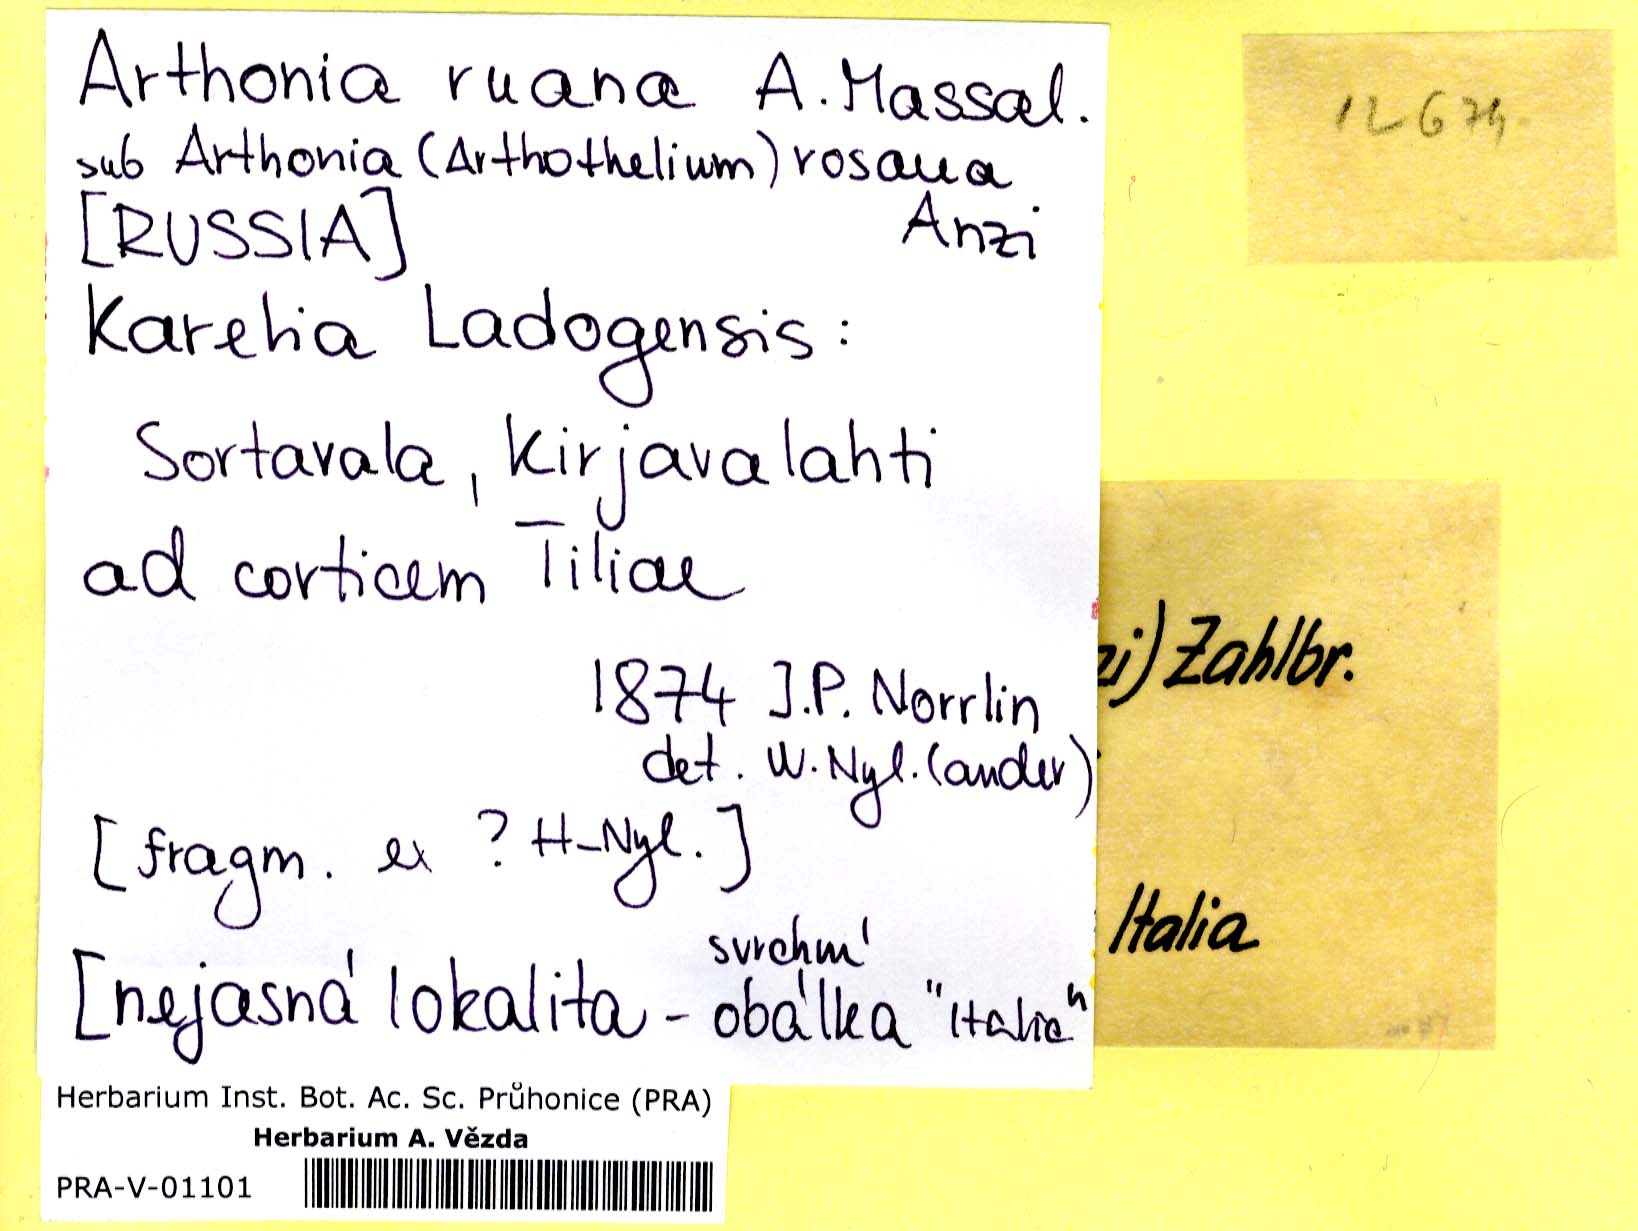 Arthonia ruana A. Massal.
sub Arthonia (Arthothelium) rosana
[RUSSIA] Anzi
Karelia Ladogensis:
Sortavala, Kirjavalahti
ad corticem Tiliae
1874 J.P. Norrlin
det. W. Nyl. (ander)
[fragm. ex ? H-Nyl.]
svrchní
[nejasná lokalita - obálka "Italia"
Herbarium Inst. Bot. Ac. Sc. Průhonice (PRA)
Herbarium A. Vězda
PRA-V-01101
zi) Zahlbr.
Italia